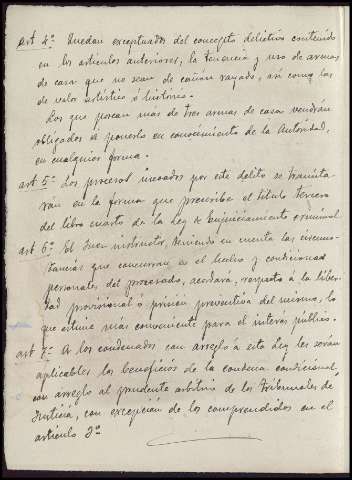 art 4º Quedan exceptuados del concepto delictivo contenido
en los articulos anteriores, la tenencia y uso de armas
de casa que no sean de cañon rayado, así como las
de valor artístico ó historico.
Los que posean más de tres armas de casa vendrán
obligados á ponerlo en conocimiento de la Autoridad,
en cualquier forma.
art 5º Los procesos incoados por este delito se tramita-
rán en la forma que prescribe el titulo tercero
del libro cuarto de la ley de Enjuiciamiento criminal
art 6º El Juez instructor, teniendo en cuenta las circuns-
tancias que concurran en el hecho y condiciones
personales del procesado, acordará, respecto á la liber-
tad provisional ó prision preventiva del mismo, lo
que estime más conveniente para el interés público.
art 7º A los condenados con arreglo á esta Ley les serán
aplicables los beneficios de la condena condicional,
con arreglo al prudente arbitrio de los Tribunales de
Justicia, con excepción de los comprendidos en el
articulo 3º